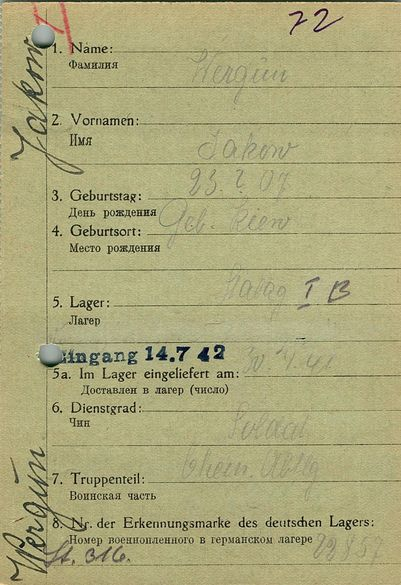 72
Jakow
1. Name:
Фамилия
Wergun
2. Vornamen:
Имя
Jakow
3. Geburtstag:
День рождения
4. Geburtsort:
Geb. Kiew
Место рождения
Stalag I B
5. Lager:
Лагер
Eingang 14.7 42
5a. Im Lager eingeliefert am:
Доставлен в лагер (число)
6. Dienstgrad:
Soldat
Чин
7. Truppenteil:
Воинская часть
8. Nr. der Erkennungsmarke des deutschen Lagers:
Номер военнопленного в германском лагере
Wergun
St. 316.